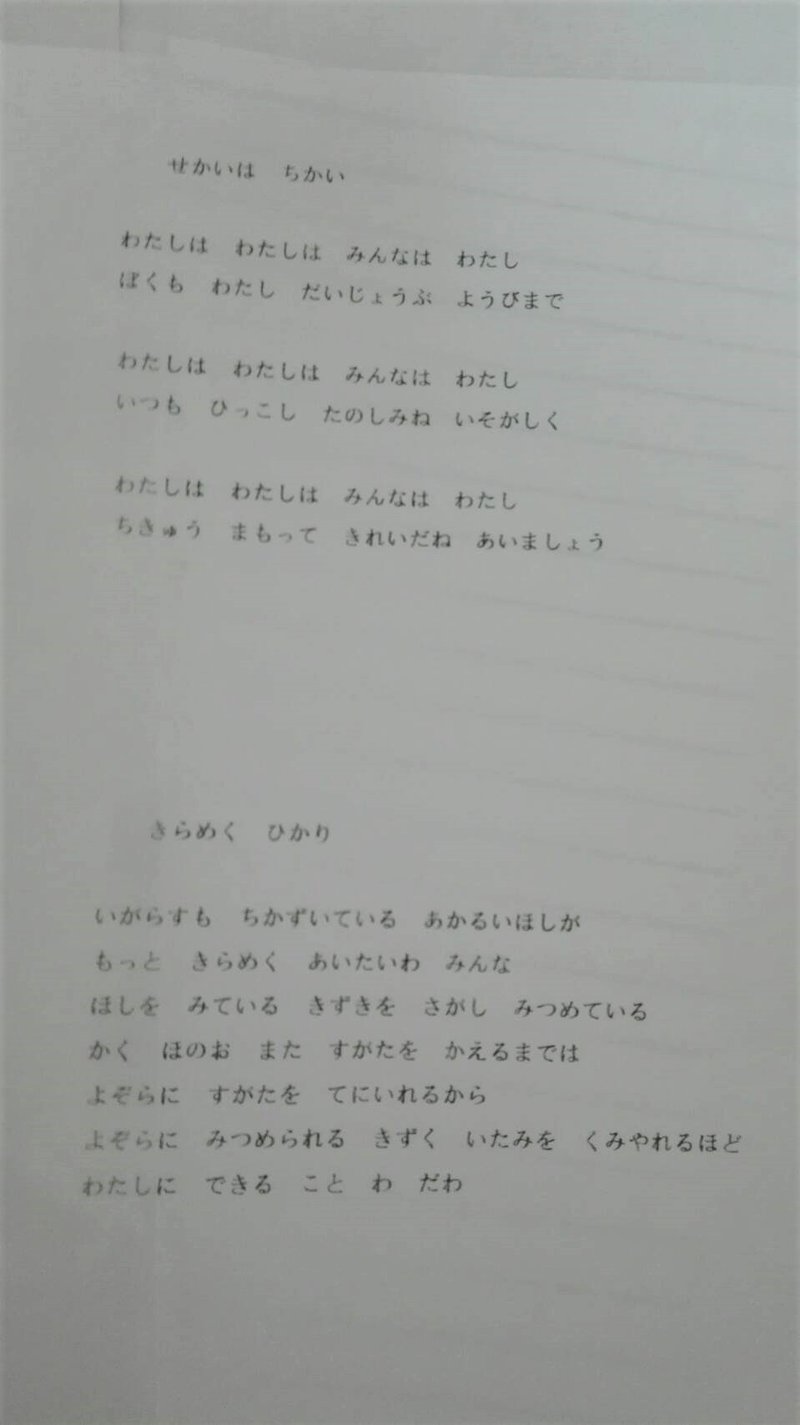 せかいは　ちかい
わたしは　わたしは　みんなは　わたし
ぼくも　わたし　だいじょうぶ　ようびまで
わたしは　わたしは　みんなは　わたし
いつも　ひっこし　たのしみね　いそがしく
わたしは　わたしは　みんなは　わたし
ちきゅう　まもって　きれいだね　あいましょう
きらめく　ひかり
いがらすも　ちかずいている　あかるいほしが
もっと　きらめく　あいたいわ　みんな
ほしを　みている　きずきを　さがし　みつめている
かく　ほのお　また　すがたを　かえるまでは
よぞらに　すがたを　てにいれるから
よぞらに　みつめられる　きずく　いたみを　くみやれるほど
わたしに　できる　こと　わ　だわ